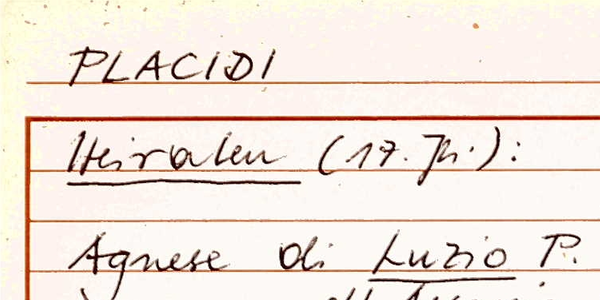 PLACIDI
Heiraten (17. Jh.):
Agnese di Luzio P.